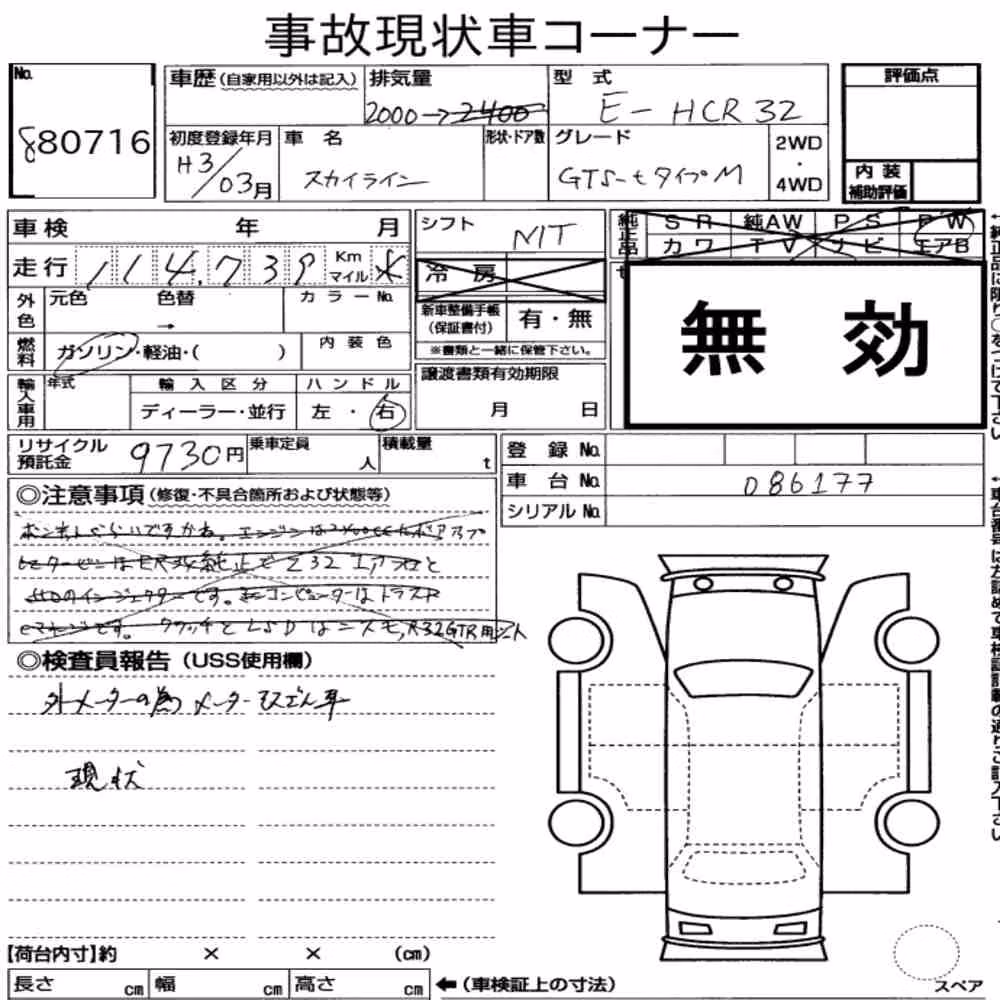 事故現状車コーナー
No.
880716
車歴(自家用以外は記入)
排気量
2000→2400
型 式
E-HCR32
評価点
初度登録年月
H3/03月
車 名
スカイライン
形状・ドア数
グレード
GTS-tタイプM
2WD
・
4WD
内 装
補助評価
車検 年 月
シフト
MT
純正品
SR 純AW PS PW
カワ TV ナビ エアB
走行 114,739 Km マイル
冷 房
外色
元色 色替 カラーNo.
→
新車整備手帳
(保証書付)
有・無
※書類と一緒に保管下さい。
無 効
燃料
ガソリン・軽油・( )
内 装 色
輸入車用
年式
輸 入 区 分
ハ ン ド ル
ディーラー・並行
左 ・ 右
譲渡書類有効期限
月 日
リサイクル
預託金
9730円
乗車定員
人
積載量
t
登 録 No.
車 台 No.
086177
シリアル No.
◎注意事項(修復・不具合箇所および状態等)
エンジンは2400cc
タービンは 純正で Z32 エアフロと
インジェクターです。 コンピューターはトラスト
です。 クラッチとLSDはニスモ,R32GTR用シート
◎検査員報告(USS使用欄)
外メーターの為 メーター
現状
【荷台内寸】約 × × (cm)
長さ cm 幅 cm 高さ cm
←(車検証上の寸法)
スペア